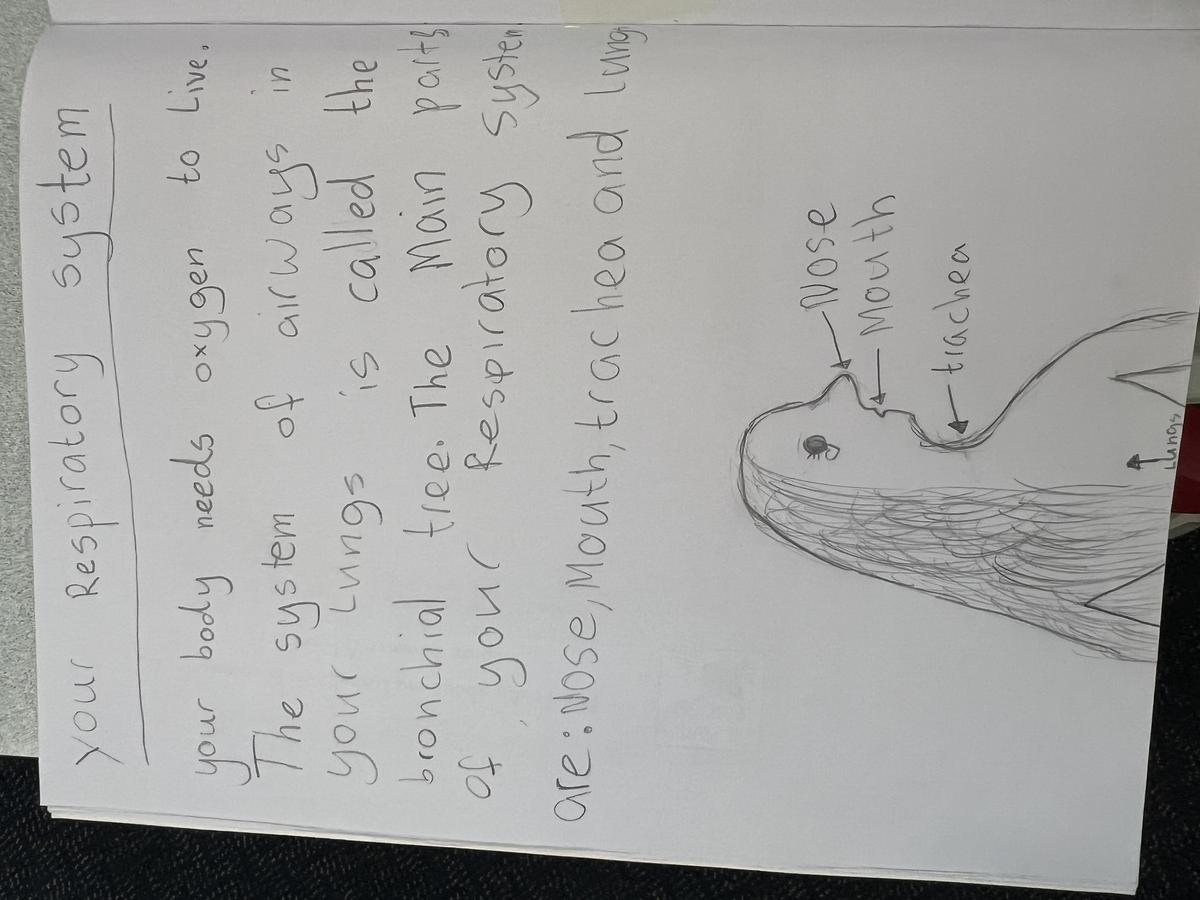 your Respiratory system
your body needs oxygen to Live.
The system of airways in
your Lungs is called the
bronchial tree. The Main parts
of your Respiratory system
are: Nose, Mouth, trachea and Lungs
Nose
Mouth
trachea
Lungs